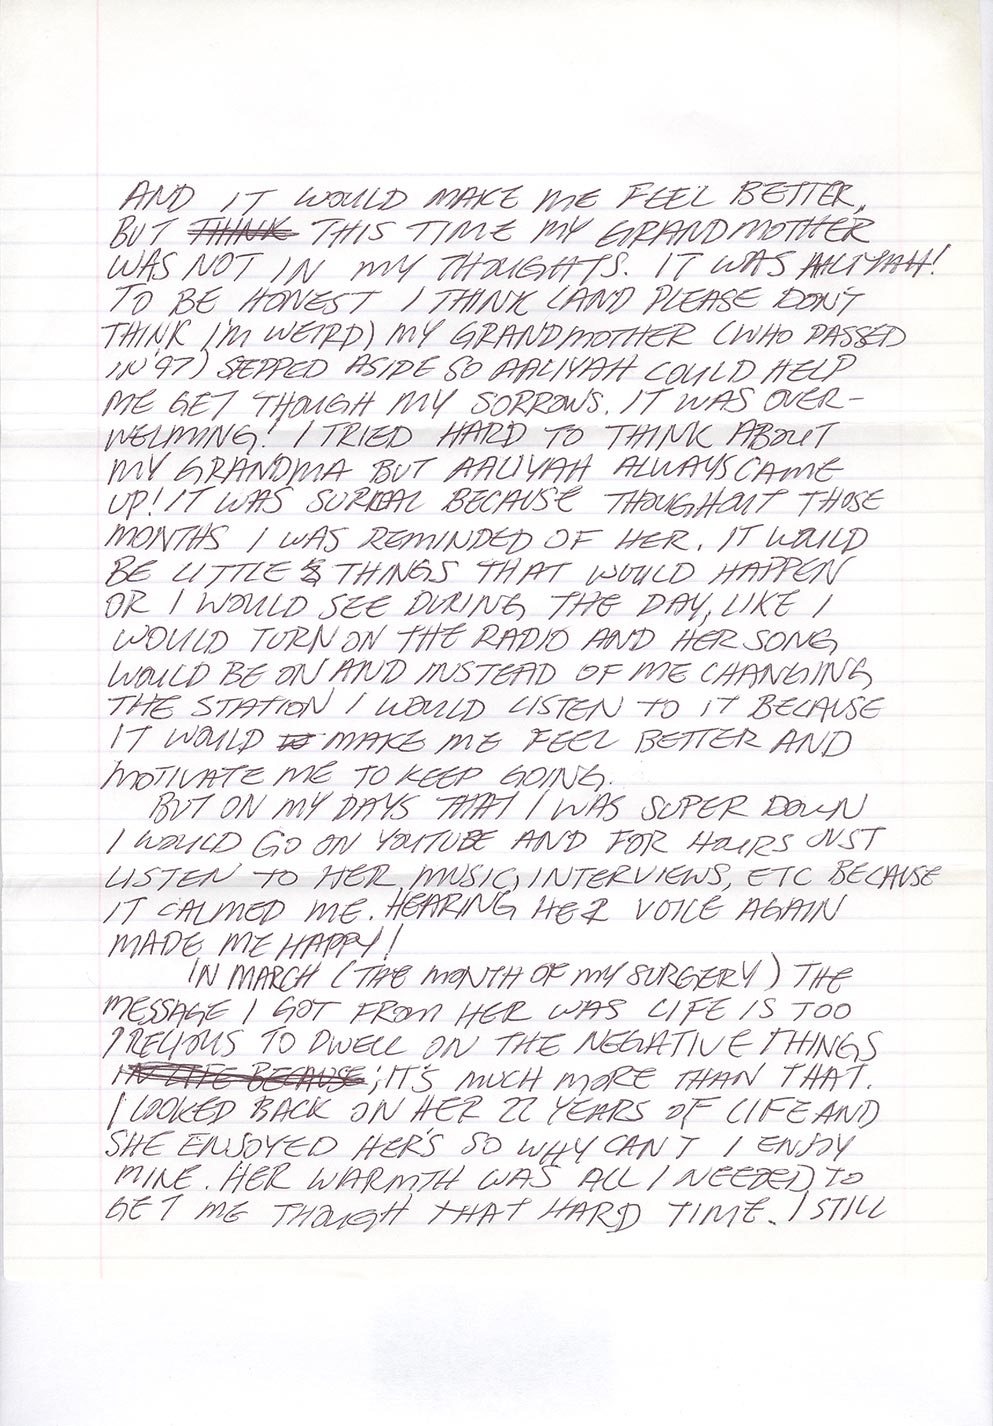 AND IT WOULD MAKE ME FEEL BETTER.
BUT THINK THIS TIME MY GRANDMOTHER
WAS NOT IN MY THOUGHTS. IT WAS AALIYAH!
TO BE HONEST I THINK (AND PLEASE DON'T
THINK I'M WEIRD) MY GRANDMOTHER (WHO PASSED
IN '97) STEPPED ASIDE SO AALIYAH COULD HELP
ME GET THOUGH MY SORROWS. IT WAS OVER-
WELMING! I TRIED HARD TO THINK ABOUT
MY GRANDMA BUT AALIYAH ALWAYS CAME
UP! IT WAS SURREAL BECAUSE THOUGHOUT THOSE
MONTHS I WAS REMINDED OF HER. IT WOULD
BE LITTLE THINGS THAT WOULD HAPPEN
OR I WOULD SEE DURING THE DAY, LIKE I
WOULD TURN ON THE RADIO AND HER SONG
WOULD BE ON AND INSTEAD OF ME CHANGING
THE STATION I WOULD LISTEN TO IT BECAUSE
IT WOULD TO MAKE ME FEEL BETTER AND
MOTIVATE ME TO KEEP GOING.
BUT ON MY DAYS THAT I WAS SUPER DOWN
I WOULD GO ON YOUTUBE AND FOR HOURS JUST
LISTEN TO HER MUSIC, INTERVIEWS, ETC BECAUSE
IT CALMED ME. HEARING HER VOICE AGAIN
MADE ME HAPPY!
IN MARCH (THE MONTH OF MY SURGERY) THE
MESSAGE I GOT FROM HER WAS LIFE IS TOO
PRECIOUS TO DWELL ON THE NEGATIVE THINGS
IN LIFE BECAUSE; IT'S MUCH MORE THAN THAT.
I LOOKED BACK ON HER 22 YEARS OF LIFE AND
SHE ENJOYED HER'S SO WHY CAN'T I ENJOY
MINE. HER WARMTH WAS ALL I NEEDED TO
GET ME THOUGH THAT HARD TIME. I STILL